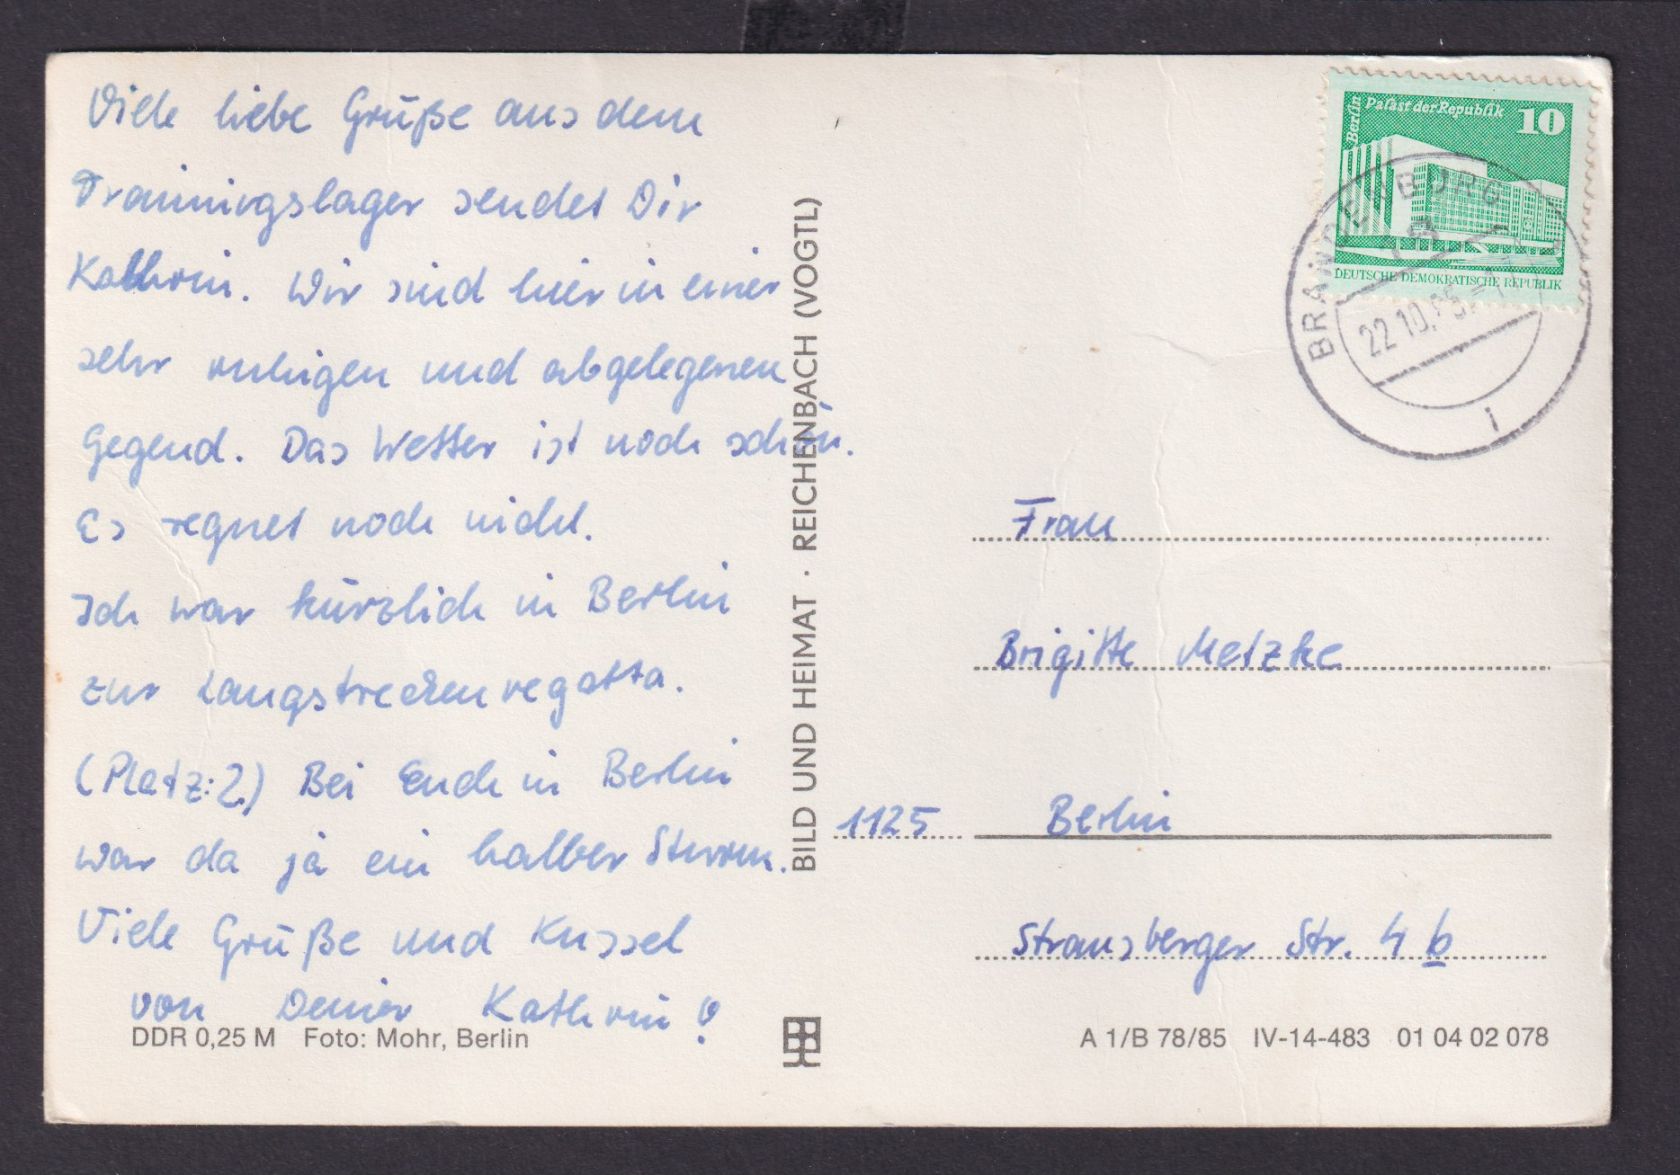 Viele liebe Grüße aus dem
Trainingslager sendet Dir
Kathrin. Wir sind hier in einer
sehr ruhigen und abgelegenen
Gegend. Das Wetter ist noch schön.
Es regnet noch nicht.
Ich war kürzlich in Berlin
zur Langstreckenregatta.
(Platz: 2.) Bei Euch in Berlin
war da ja ein halber Sturm.
Viele Grüße und Kussel
von Deiner Kathrin!
DDR 0,25 M Foto: Mohr, Berlin
BILD UND HEIMAT · REICHENBACH (VOGTL)
Berlin
Palast der Republik
10
DEUTSCHE DEMOKRATISCHE REPUBLIK
BRANDENBURG
22.10.
i
Frau
Brigitte Metzke
1125 Berlin
Strausberger Str. 4 b
A 1/B 78/85 IV-14-483 01 04 02 078